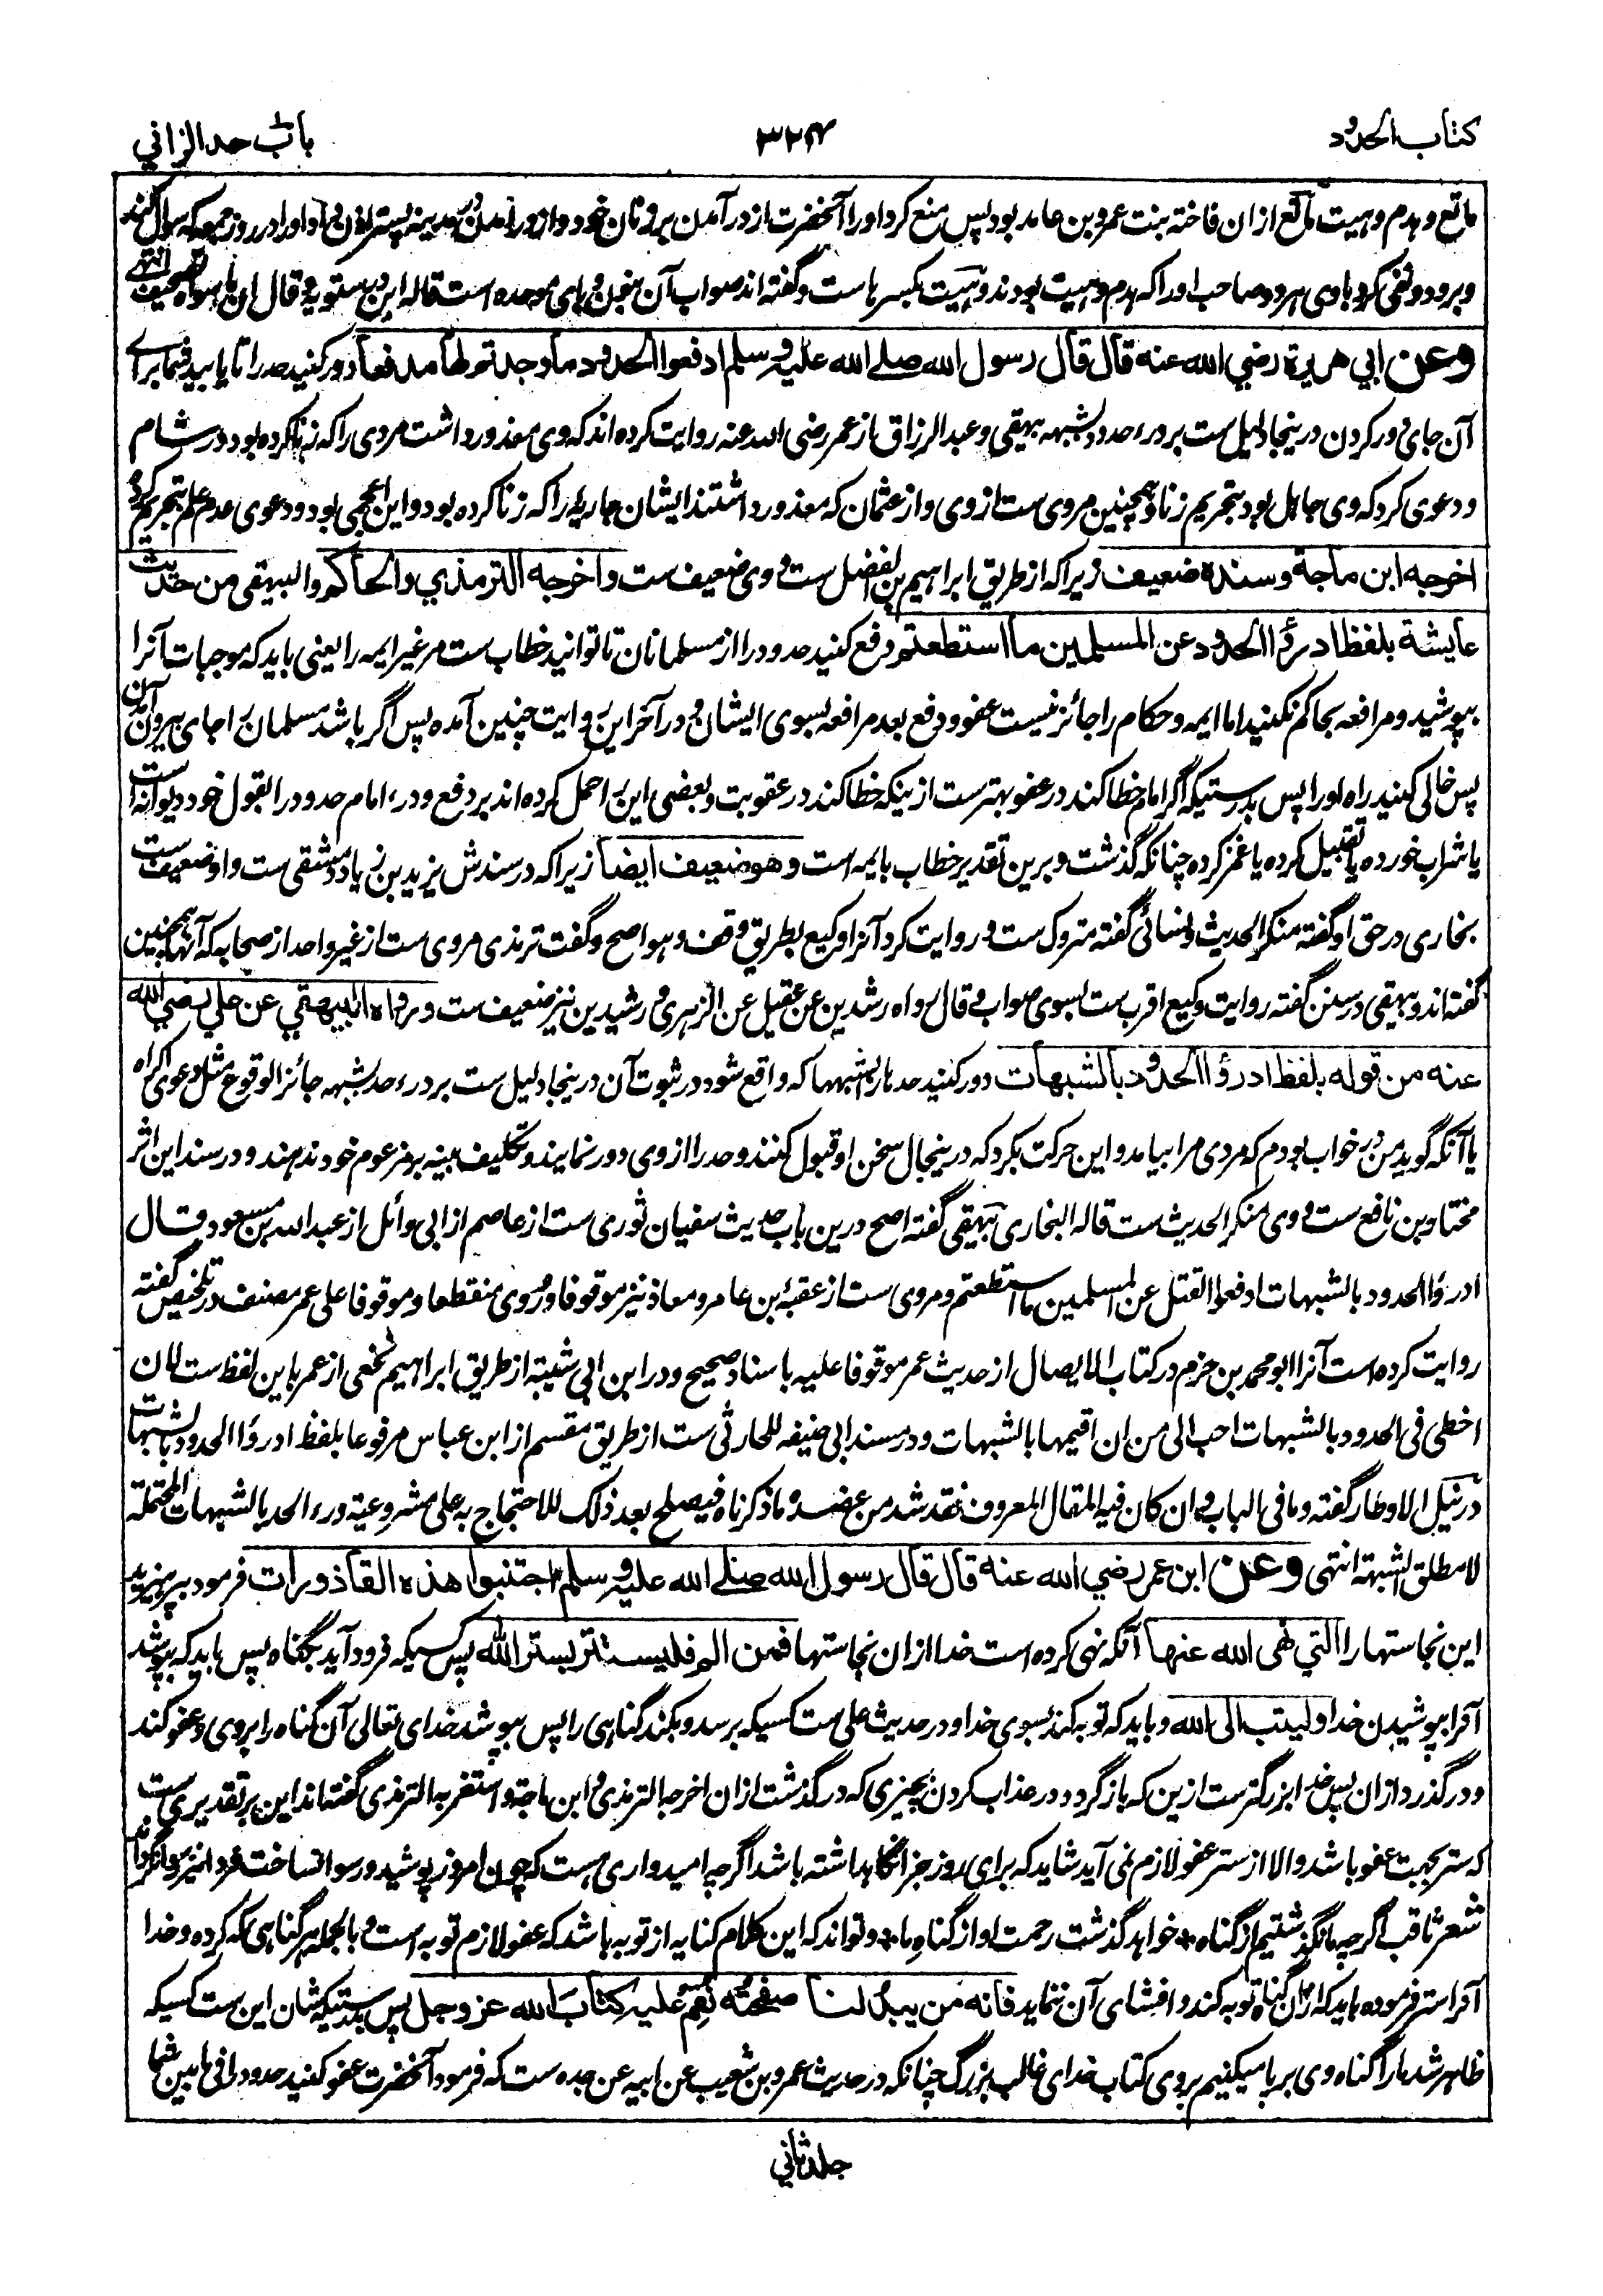 کتاب الحدود
۳۲۴
باب حد الزاني
ماتع و هدم و هیت ماتع ازان فاخته بنت عمرو بن عامد بود پس منع کرد او را آنحضرت از در آمدن بر زنان خود و از در آمدن در مدینه پستر اذن داد او را در روز جمعه که سوال کند
و برود و نفی کرد با وی هر دو صاحب او را که هدم و هیت بودند و هیت بکسر هاست و گفته اند صواب آن بفتح و بای موحده است قاله ابن درستویه و قال ان ما سواه تصحیف انتهی
وعن ابي هريرة رضي الله عنه قال قال رسول الله صلى الله عليه وسلم ادفعوا الحدود ما وجدتم لها مدفعا دور کنید حد را تا یابید شما برای
آن جای دور کردن درینجا دلیل ست بر درء حدود بشبهه بیهقی و عبد الرزاق از عمر رضی الله عنه روایت کرده اند که وی معذور داشت مردی را که زنا کرده بود در شام
و دعوی کرد که وی جاهل بود بتحریم زنا و همچنین مروی ست از وی و از عثمان که معذور داشتند ایشان جاریه را که زنا کرده بود و این عجمی بود و دعوی عدم علم بتحریم کرد
اخرجه ابن ماجة وسنده ضعيف زیرا که از طریق ابراهیم بن الفضل ست و وی ضعیف ست واخرجه الترمذي والحاكم والبيهقي من حديث
عايشة بلفظ ادرؤا الحدود عن المسلمين ما استطعتم دفع کنید حدود را از مسلمانان تا توانید خطاب ست مر غیر ایمه را یعنی باید که موجبات آنرا
بپوشید و مرافعه بحاکم نکنید اما ایمه و حکام را جائز نیست عفو و دفع بعد مرافعه بسوی ایشان و در آخر این روایت چنین آمده پس اگر باشد مسلمان را جای بیرون آمدن
پس خالی کنید راه او را پس بدرستیکه اگر امام خطا کند در عفو بهتر ست از ینکه خطا کند در عقوبت و بعضی این را حمل کرده اند بر دفع و درء امام حدود را بقول خود دیوانه است
یا شراب خورده یا تقبیل کرده یا غمز کرده چنانکه گذشت و برین تقدیر خطاب بایمه است وهو ضعيف ايضا زیرا که در سندش یزید بن زیاد دمشقی ست و او ضعیف ست
بخاری در حق او گفته منکر الحدیث و نسائی گفته متروک ست و روایت کرد آنرا وکیع بطریق وقف و هو اصح و گفت ترمذی مروی ست از غیر واحد از صحابه که آنها همچنین
گفته اند و بیهقی در سنن گفته روایت وکیع اقرب ست بسوی صواب و قال رواه رشدین عن عقیل عن الزهری و رشیدین نیز ضعیف ست ورواه البيهقي عن علي رضي الله
عنه من قوله بلفظ ادرؤا الحدود بالشبهات دور کنید حدها را بشبهها که واقع شود در ثبوت آن درینجا دلیل ست بر درء حد بشبهه جائز الوقوع مثل دعوی اکراه
یا آنکه گوید من در خواب بودم که مردی مرا بیامد و این حرکت بکرد که درینحال سخن او قبول کنند و حد را از وی دور نمایند و تکلیف بینه بر مزعوم خود ندهند و در سند این اثر
مختار بن نافع ست و وی منکر الحدیث ست قاله البخاری بیهقی گفته اصح درین باب حدیث سفیان ثوری ست از عاصم از ابی وائل از عبد الله بن مسعود قال
ادرؤا الحدود بالشبهات ادفعوا القتل عن المسلمین ما استطعتم و مروی ست از عقبة بن عامر و معاذ نیز موقوفا و روی منقطعا و موقوفا علی عمر مصنف در تلخیص گفته
روایت کرده است آنرا ابو محمد بن حزم در کتاب الایصال از حدیث عمر موقوفا علیه باسناد صحیح و در ابن ابی شیبة از طریق ابراهیم نخعی از عمر باین لفظ ست لان
اخطی فی الحدود بالشبهات احب الی من ان اقیمها بالشبهات و در مسند ابی حنیفه للحارثی ست از طریق مقسم از ابن عباس مرفوعا بلفظ ادرؤا الحدود بالشبهات
در نیل الاوطار گفته و ما فی الباب و ان کان فیه المقال المعروف فقد شد من عضده ما ذکرناه فیصلح بعد ذلک للاحتجاج به علی مشروعیة درء الحد بالشبهات المحتملة
لا مطلق الشبهة انتهی وعن ابن عمر رضي الله عنه قال قال رسول الله صلى الله عليه وسلم اجتنبوا هذه القاذورات فرمود بپرهیزید
این نجاستها را التي نهى الله عنها آنکه نهی کرده است خدا ازان نجاستها فمن الم فليستتر بستر الله پس کسیکه فرود آید بگناه پس باید که بپوشد
آنرا بپوشیدن خدا وليتب الى الله و باید که توبه کند بسوی خدا و در حدیث علی ست کسیکه برسد و بکند گناهی را پس بپوشد خدای تعالی آن گناه را بر وی و عفو کند
و در گذرد ازان پس خدا بزرگتر ست ازین که بازگردد در عذاب کردن بچیزی که در گذشت ازان اخرجه الترمذی و ابن ماجة و استغربه الترمذی گفته اند این بر تقدیری ست
که ستر بجهت عفو باشد والا از ستر عفو لازم نمی آید شاید که برای روز جزا نگاهداشته باشد اگرچه امیدواری هست که چون امروز پوشید و رسوا نساخت فردا نیز رسوا نگرداند
شعر ثاقب اگرچه ما نگذشتیم از گناه * خواهد گذشت رحمت او از گناه ما * و تواند که این کلام کنایه از توبه باشد که عفو لازم توبه است و بالجمله هر گناهی که کرده و خدا
آنرا ستر فرموده باید که ازان گناه توبه کند و افشای آن ننماید فانه من يبد لنا صفحته نقم عليه كتاب الله عز وجل پس بدرستیکه شان این ست کسیکه
ظاهر شد ما را گناه وی بر پا میکنیم بر وی کتاب خدای غالب بزرگ چنانکه در حدیث عمرو بن شعیب عن ابیه عن جده ست که فرمود آنحضرت عفو کنید حدود را فی ما بین شما
جلد ثاني